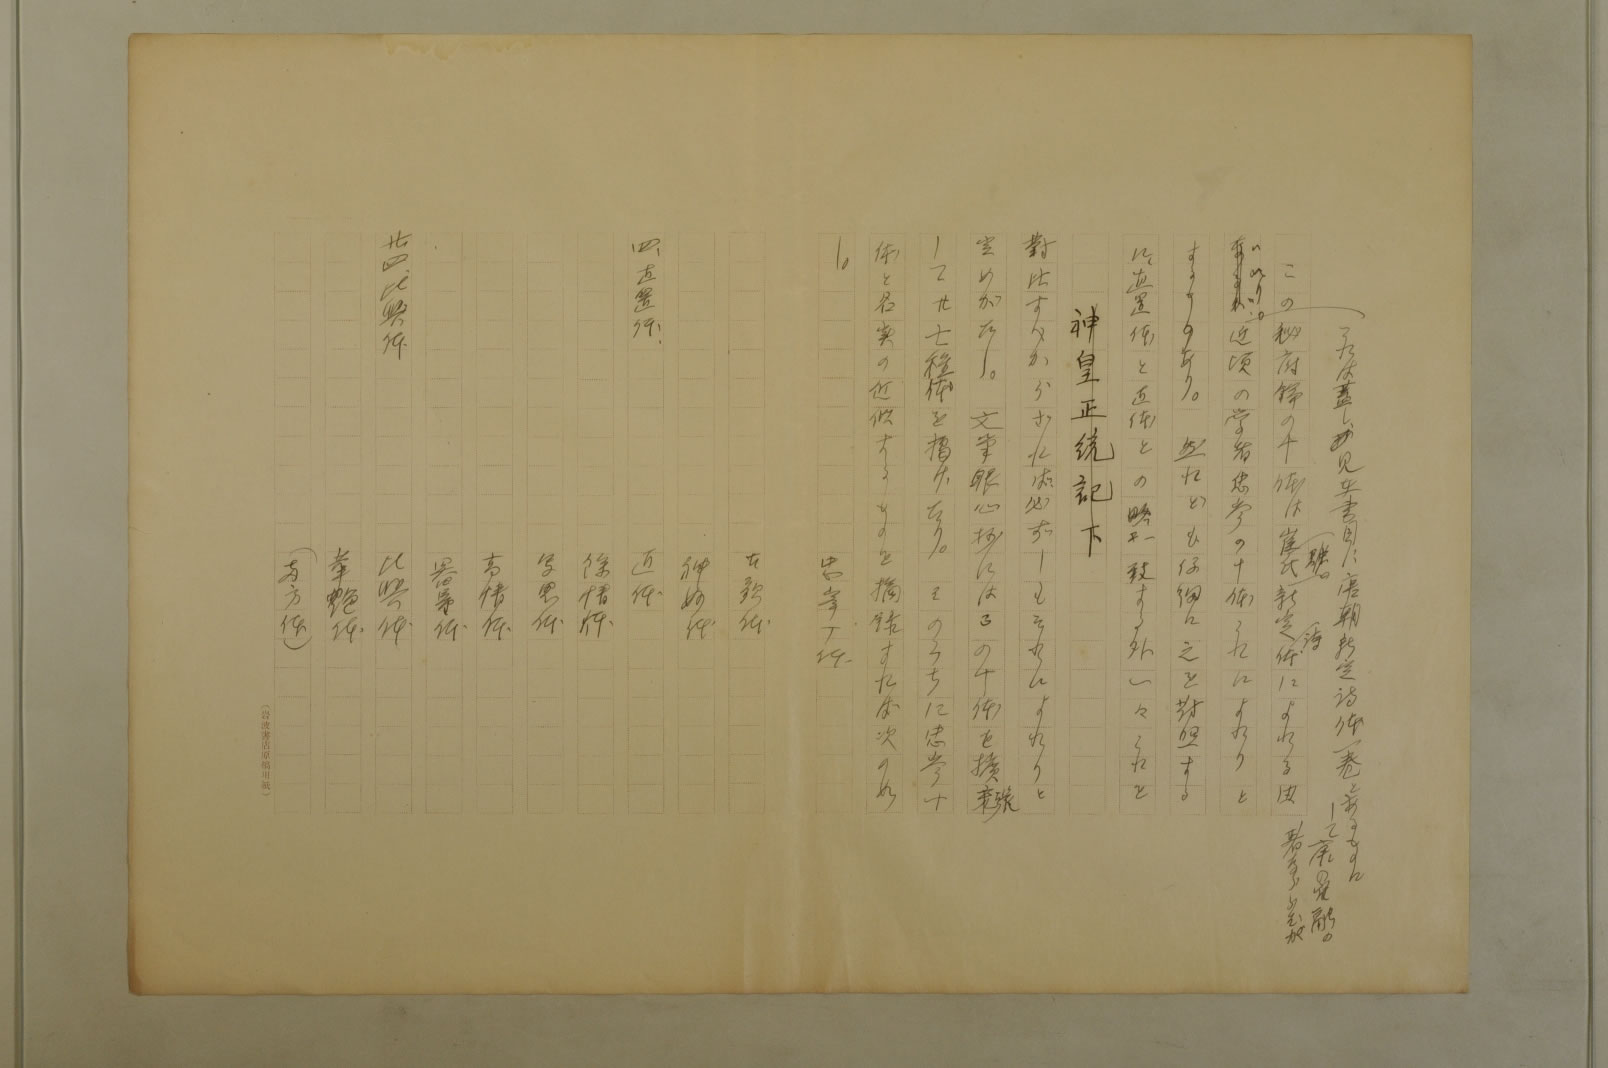 これは蓋し、見在書目に唐朝新定詩体一巻とあるものに
して唐の崔融の
著なるが
この秘府論の十体は崔氏新定体による由
融の
詩
いへり。近頃の学者忠岑の十体これによれりと
するものあり。然れども仔細に之を対照する
に直置体と直体との略一致する外一々これを
神皇正統記下
対比すべからざれば必ずしもそれによれりと
定めがたし。文筆眼心抄にはこの十体を拡張
して廿七種体を揚げたり。そのうちに忠岑十
体と名実の近似するものを摘録すれば次の如
し。
忠岑十体
古歌体
神妙体
四、直置体、直体
余情体
写思体
高情体
器量体
廿四、比興体 比興体
華艶体
(両方体)
(岩波書店原稿用紙)